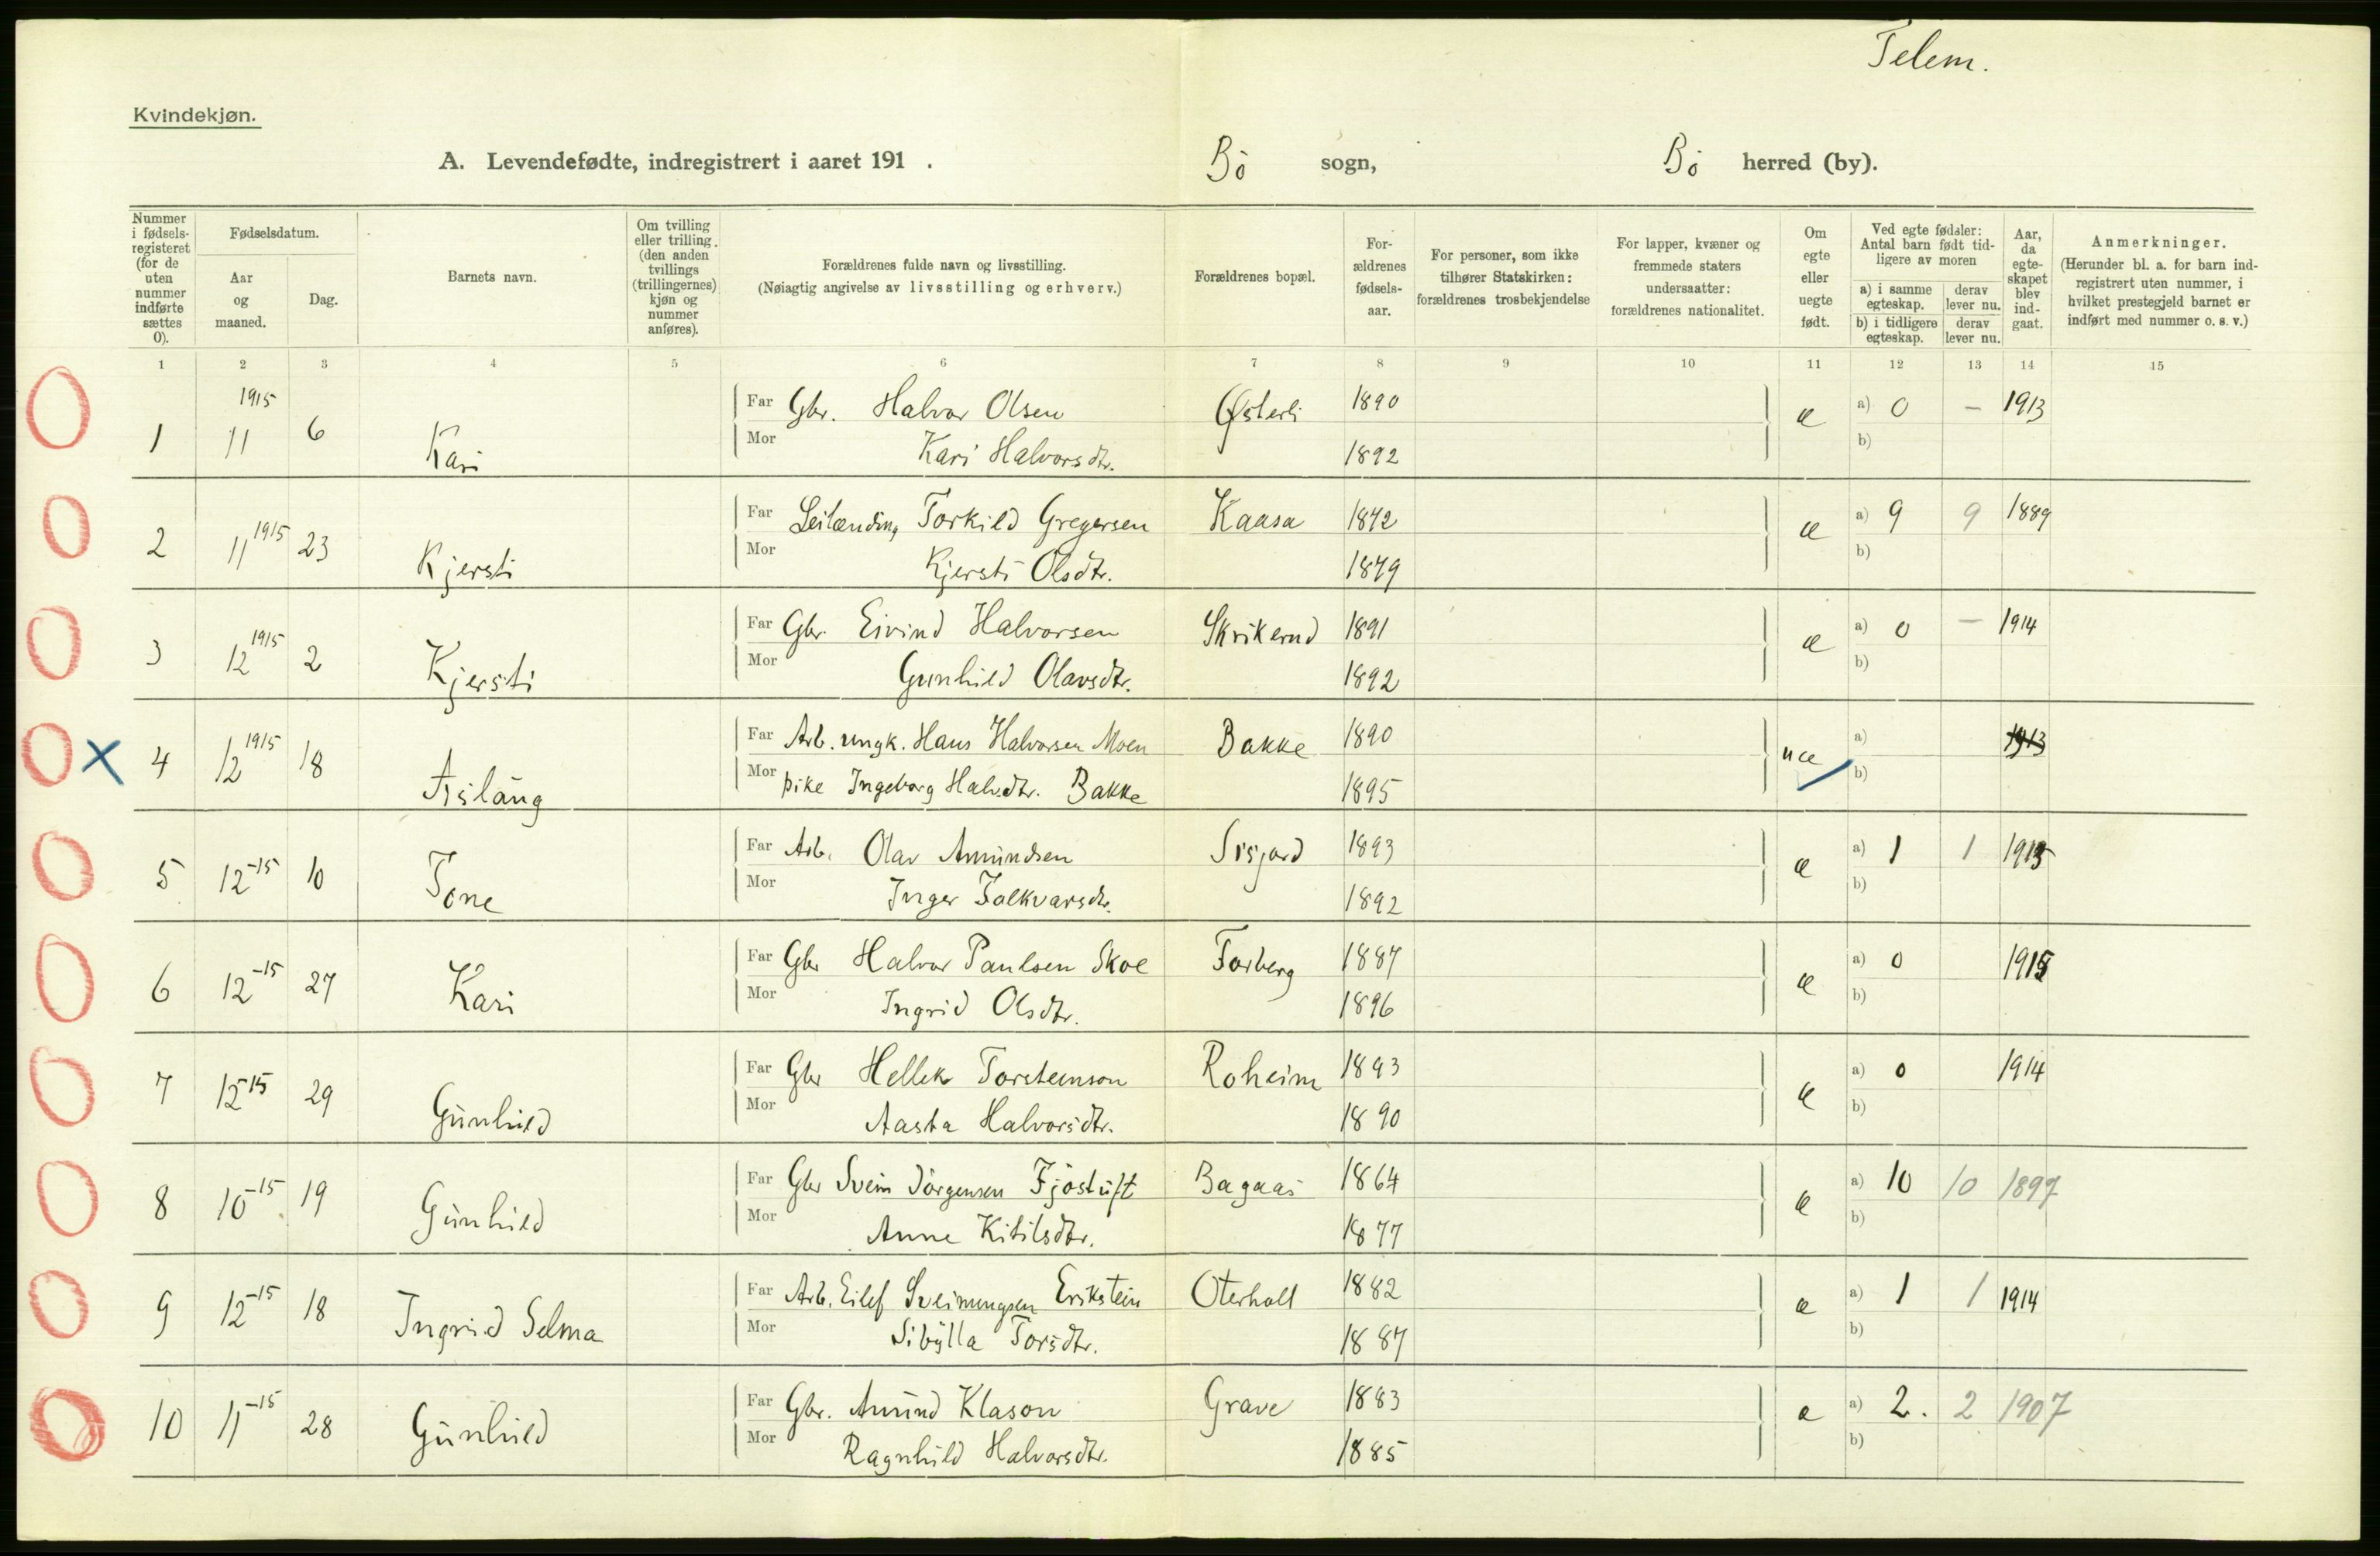 Telem.
Kvindekjøn.
A. Levendefødte, indregistrert i aaret 191 . Bö sogn, Bö herred (by).
Nummer i fødsels-registeret (for de uten nummer indførte sættes 0).
Fødselsdatum.
Aar og maaned.
Dag.
Barnets navn.
Om tvilling eller trilling. (den anden tvillings (trillingernes) kjøn og nummer anføres).
Forældrenes fulde navn og livsstilling.
(Nøiagtig angivelse av livsstilling og erhverv.)
Forældrenes bopæl.
For-ældrenes fødsels-aar.
For personer, som ikke tilhører Statskirken: forældrenes trosbekjendelse
For lapper, kvæner og fremmede staters undersaatter: forældrenes nationalitet.
Om egte eller uegte født.
Ved egte fødsler: Antal barn født tid-ligere av moren
a) i samme egteskap. derav lever nu.
b) i tidligere egteskap. derav lever nu.
Aar, da egte-skapet blev ind-gaat.
Anmerkninger.
(Herunder bl. a. for barn ind-registrert uten nummer, i hvilket prestegjeld barnet er indført med nummer o. s. v.)
1 2 3 4 5 6 7 8 9 10 11 12 13 14 15
1 1915 11 6 Kari Far Gbr. Halvor Olsen Østerli 1890 æ a) 0 – 1913
Mor Kari Halvorsdtr. 1892 b)
2 11 1915 23 Kjersti Far Leilænding Torkild Gregersen Kaasa 1872 æ a) 9 9 1889
Mor Kjersti Olsdtr. 1879 b)
3 12 1915 2 Kjersti Far Gbr. Eivind Halvorsen Skrikerud 1891 æ a) 0 – 1914
Mor Gunhild Olavsdtr. 1892 b)
4 12 1915 18 Aslaug Far Arb. ungk. Hans Halvorsen Moen Bakke 1890 uæ a) 1913
Mor pike Ingeborg Halvdtr. Bakke 1895 b)
5 12 -15 10 Tone Far Arb. Olav Amundsen 1893 æ a) 1 1 1915
Mor Inger Folkvarsdtr. 1892 b)
6 12 -15 27 Kari Far Gbr Halvor Paulsen Skoe Forberg 1887 æ a) 0 1915
Mor Ingrid Olsdtr. 1896 b)
7 12 15 29 Gunhild Far Gbr Hellek Torsteinson Roheim 1893 æ a) 0 1914
Mor Aasta Halvorsdtr. 1890 b)
8 10 -15 19 Gunhild Far Gbr Svein Jörgensen Fjöstuft Bagaas 1864 æ a) 10 10 1897
Mor Anne Kitilsdtr. 1877 b)
9 12 -15 18 Ingrid Selma Far Arb. Eilef Sveinungsen Erikstein Oterholt 1882 æ a) 1 1 1914
Mor Sibylla Torsdtr. 1887 b)
10 11 -15 28 Gunhild Far Gbr. Amund Klason Grave 1883 æ a) 2. 2 1907
Mor Ragnhild Halvorsdtr. 1885 b)